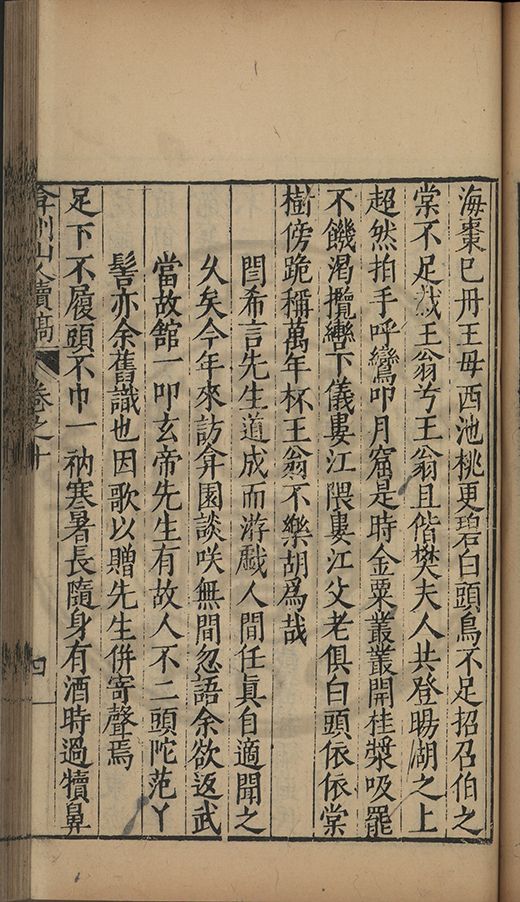 海棗巳丹王母西池桃更碧白頭烏不足招召伯之
棠不足栽王翁兮王翁且偕樊夫人共登暘湖之上
超然拍手呼鸞叩月窟是時金粟叢叢開桂漿吸罷
不饑渴攬轡下儀婁江隈婁江父老俱白頭依依棠
樹傍跪稱萬年杯王翁不樂胡爲哉
閻希言先生道成而游戲人間任眞自適聞之
久矣今年來訪弇園談咲無間忽語余欲返武
當故舘一叩玄帝先生有故人不二頭陀范丫
髻亦余舊識也因歌以贈先生併寄聲焉
足下不履頭不巾一衲寒暑長隨身有酒時過犢鼻
弇州山人續稿 卷之十 四